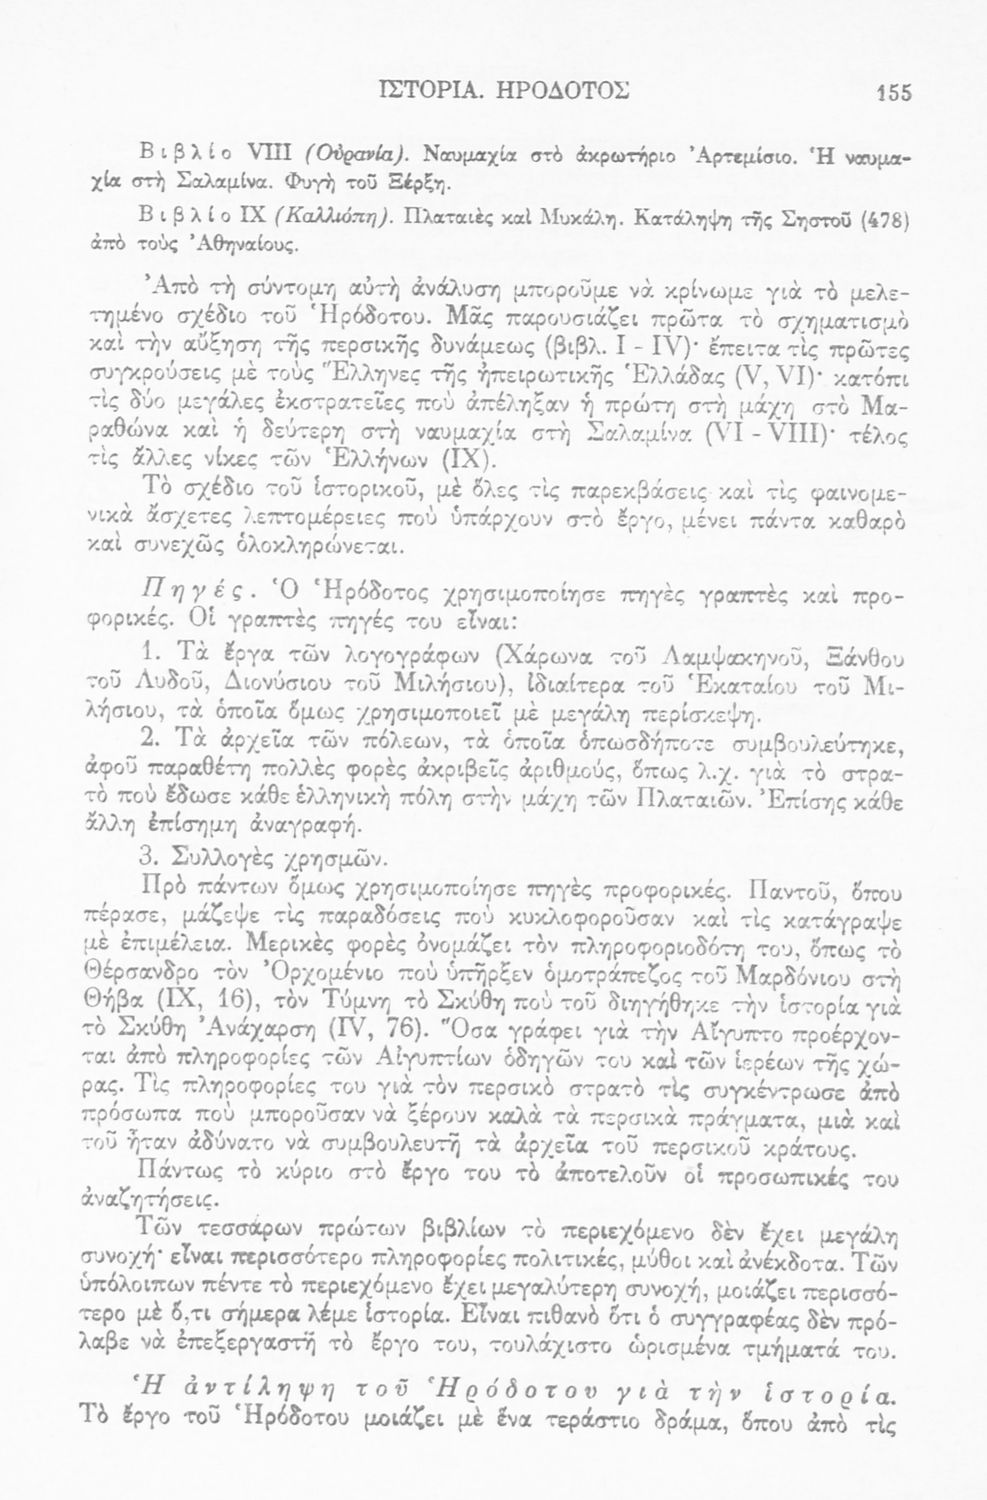 ΙΣΤΟΡΙΑ. ΗΡΟΔΟΤΟΣ 155
Βιβλίο VIII (Οὐρανία). Ναυμαχία στὸ ἀκρωτήριο Ἀρτεμίσιο. Ἡ ναυμα-
χία στὴ Σαλαμίνα. Φυγὴ τοῦ Ξέρξη.
Βιβλίο IX (Καλλιόπη). Πλαταιὲς καὶ Μυκάλη. Κατάληψη τῆς Σηστοῦ (478)
ἀπὸ τοὺς Ἀθηναίους.
Ἀπὸ τὴ σύντομη αὐτὴ ἀνάλυση μποροῦμε νὰ κρίνωμε γιὰ τὸ μελε-
τημένο σχέδιο τοῦ Ἡρόδοτου. Μᾶς παρουσιάζει πρῶτα τὸ σχηματισμὸ
καὶ τὴν αὔξηση τῆς περσικῆς δυνάμεως (βιβλ. I - IV)· ἔπειτα τὶς πρῶτες
συγκρούσεις μὲ τοὺς Ἕλληνες τῆς ἠπειρωτικῆς Ἑλλάδας (V, VI)· κατόπι
τὶς δύο μεγάλες ἐκστρατεῖες ποὺ ἀπέληξαν ἡ πρώτη στὴ μάχη στὸ Μα-
ραθώνα καὶ ἡ δεύτερη στὴ ναυμαχία στὴ Σαλαμίνα (VI - VIII)· τέλος
τὶς ἄλλες νίκες τῶν Ἑλλήνων (IX).
Τὸ σχέδιο τοῦ ἱστορικοῦ, μὲ ὅλες τὶς παρεκβάσεις καὶ τὶς φαινομε-
νικὰ ἄσχετες λεπτομέρειες ποὺ ὑπάρχουν στὸ ἔργο, μένει πάντα καθαρὸ
καὶ συνεχῶς ὁλοκληρώνεται.
Πηγές. Ὁ Ἡρόδοτος χρησιμοποίησε πηγὲς γραπτὲς καὶ προ-
φορικές. Οἱ γραπτὲς πηγές του εἶναι:
1. Τὰ ἔργα τῶν λογογράφων (Χάρωνα τοῦ Λαμψακηνοῦ, Ξάνθου
τοῦ Λυδοῦ, Διονύσιου τοῦ Μιλήσιου), ἰδιαίτερα τοῦ Ἑκαταίου τοῦ Μι-
λήσιου, τὰ ὁποῖα ὅμως χρησιμοποιεῖ μὲ μεγάλη περίσκεψη.
2. Τὰ ἀρχεῖα τῶν πόλεων, τὰ ὁποῖα ὁπωσδήποτε συμβουλεύτηκε,
ἀφοῦ παραθέτη πολλὲς φορὲς ἀκριβεῖς ἀριθμούς, ὅπως λ.χ. γιὰ τὸ στρα-
τὸ ποὺ ἔδωσε κάθε ἑλληνικὴ πόλη στὴν μάχη τῶν Πλαταιῶν. Ἐπίσης κάθε
ἄλλη ἐπίσημη ἀναγραφή.
3. Συλλογὲς χρησμῶν.
Πρὸ πάντων ὅμως χρησιμοποίησε πηγὲς προφορικές. Παντοῦ, ὅπου
πέρασε, μάζεψε τὶς παραδόσεις ποὺ κυκλοφοροῦσαν καὶ τὶς κατάγραψε
μὲ ἐπιμέλεια. Μερικὲς φορὲς ὀνομάζει τὸν πληροφοριοδότη του, ὅπως τὸ
Θέρσανδρο τὸν Ὀρχομένιο ποὺ ὑπῆρξεν ὁμοτράπεζος τοῦ Μαρδόνιου στὴ
Θήβα (IX, 16), τὸν Τύμνη τὸ Σκύθη ποὺ τοῦ διηγήθηκε τὴν ἱστορία γιὰ
τὸ Σκύθη Ἀνάχαρση (IV, 76). Ὅσα γράφει γιὰ τὴν Αἴγυπτο προέρχον-
ται ἀπὸ πληροφορίες τῶν Αἰγυπτίων ὁδηγῶν του καὶ τῶν ἱερέων τῆς χώ-
ρας. Τὶς πληροφορίες του γιὰ τὸν περσικὸ στρατὸ τὶς συγκέντρωσε ἀπὸ
πρόσωπα ποὺ μποροῦσαν νὰ ξέρουν καλὰ τὰ περσικὰ πράγματα, μιὰ καὶ
τοῦ ἦταν ἀδύνατο νὰ συμβουλευτῆ τὰ ἀρχεῖα τοῦ περσικοῦ κράτους.
Πάντως τὸ κύριο στὸ ἔργο του τὸ ἀποτελοῦν οἱ προσωπικές του
ἀναζητήσεις.
Τῶν τεσσάρων πρώτων βιβλίων τὸ περιεχόμενο δὲν ἔχει μεγάλη
συνοχή· εἶναι περισσότερο πληροφορίες πολιτικές, μύθοι καὶ ἀνέκδοτα. Τῶν
ὑπόλοιπων πέντε τὸ περιεχόμενο ἔχει μεγαλύτερη συνοχή, μοιάζει περισσό-
τερο μὲ ὅ,τι σήμερα λέμε ἱστορία. Εἶναι πιθανὸ ὅτι ὁ συγγραφέας δὲν πρό-
λαβε νὰ ἐπεξεργαστῆ τὸ ἔργο του, τουλάχιστο ὡρισμένα τμήματά του.
Ἡ ἀντίληψη τοῦ Ἡρόδοτου γιὰ τὴν ἱστορία.
Τὸ ἔργο τοῦ Ἡρόδοτου μοιάζει μὲ ἕνα τεράστιο δράμα, ὅπου ἀπὸ τὶς